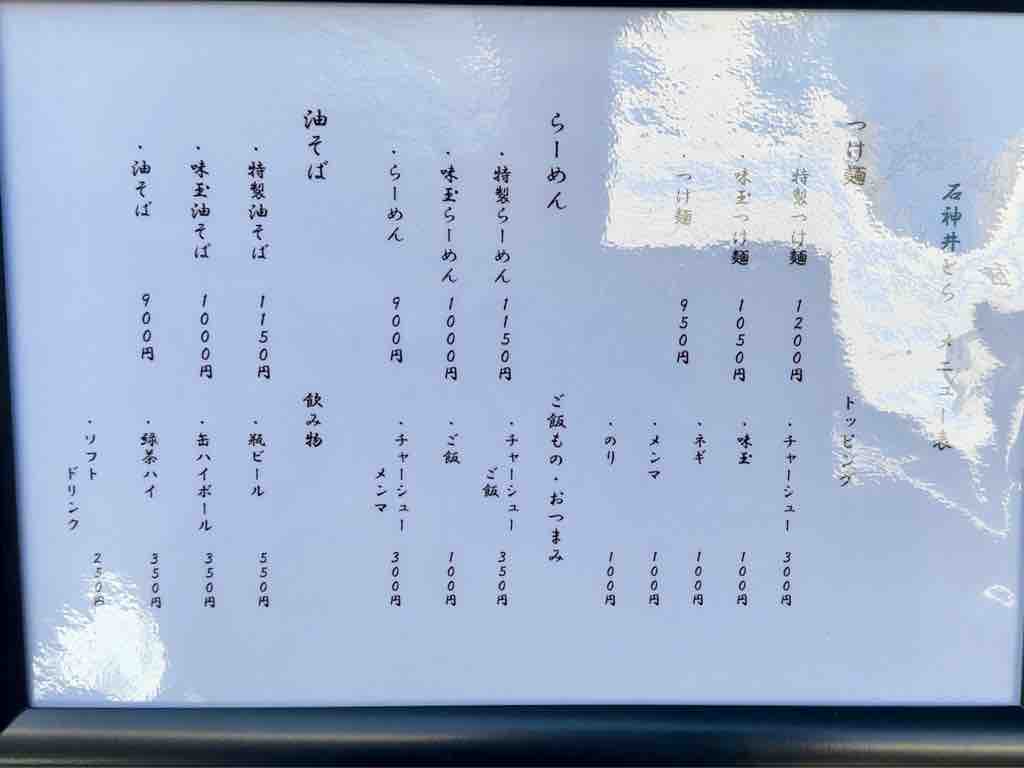 石神井とら メニュー表
つけ麺
・特製つけ麺 1200円
・味玉つけ麺 1050円
・つけ麺 950円
らーめん
・特製らーめん 1150円
・味玉らーめん 1000円
・らーめん 900円
油そば
・特製油そば 1150円
・味玉油そば 1000円
・油そば 900円
トッピング
・チャーシュー 300円
・味玉 100円
・ネギ 100円
・メンマ 100円
・のり 100円
ご飯もの・おつまみ
・チャーシュー
ご飯 350円
・ご飯 100円
・チャーシュー
メンマ 300円
飲み物
・瓶ビール 550円
・缶ハイボール 350円
・緑茶ハイ 350円
・ソフト
ドリンク 250円